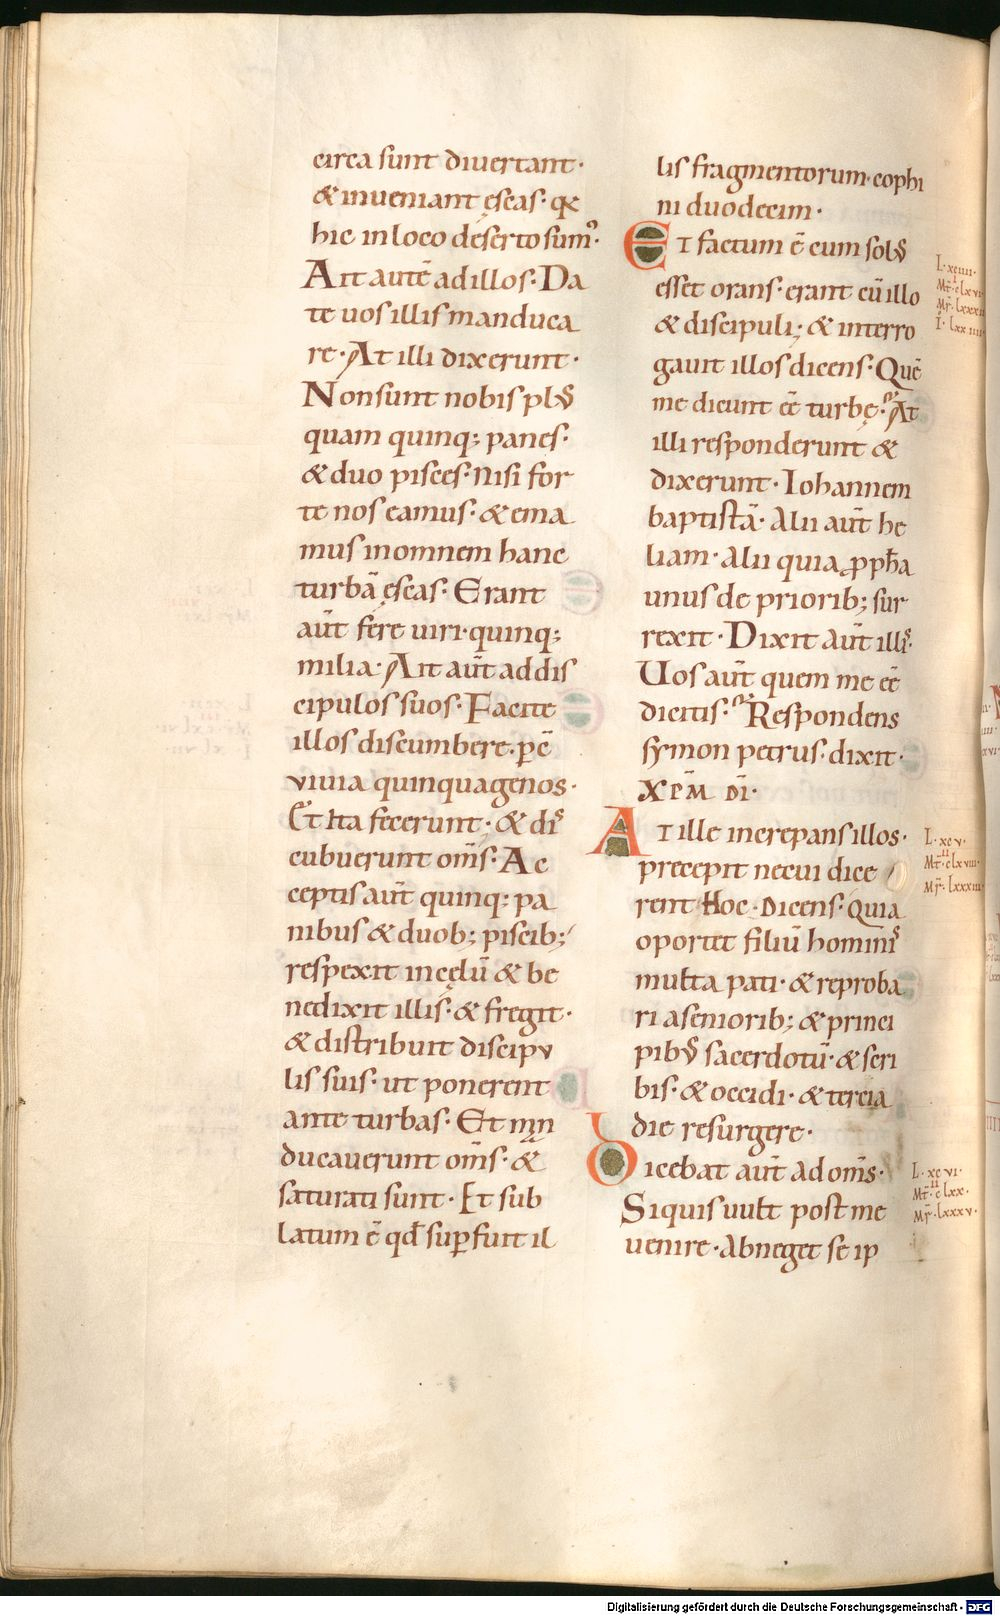 circa sunt diuertant·
& inueniant ęscas· qꝛ
hic in loco deserto sum᾽·
Ait autē ad illos· Da
te uos illis manduca
re· At illi dixerunt·
Non sunt nobis plꝰ
quam quinq; panes·
& duo pisces· nisi for
te nos eamus· & ema
mus in omnem hanc
turbā ęscas· Erant
aūt fere uiri quinq;
milia· Ait aūt ad dis
cipulos suos· Facite
illos discumbere· p cē
uiuia quinquagenos·
Et ita fecerunt· & disͥ
cubuerunt om̄s· Ac
ceptis aūt quinq; pa
nibus & duob; piscib;
respexit in cęlū & be
nedixit illis· & fregit·
& distribuit discipu
lis suis· ut ponerent
ante turbas· Et man
ducauerunt om̄s· &
saturati sunt· Et sub
latum ē qđ suꝑfuit il
lis fragmentorum cophi
ni duodecim·
Et factum ē cum solꝰ
esset orans· erant cū illo
& discipuli; & interro
gauit illos dicens· Quē
me dicunt eē turbę· At
illi responderunt &
dixerunt· Iohannem
baptistā· Alii aūt he
liam· Alii quia ꝓpħa
unus de priorib; sur
rexit· Dixit aūt illiˢ·
Uos aūt quem me eē
dicitis· Respondens
symon petrus· dixit·
XP̄M DĪ·
At ille increpans illos·
precepit ne cui dice
rent hoc· Dicens· Quia
oportet filiū hominiˢ
multa pati· & reproba
ri a seniorib; & princi
pibꝰ sacerdotū· & scri
bis· & occidi· & tercia
die resurgere·
Dicebat aūt ad om̄s·
Si quis uult post me
uenire· Abneget se ip
L· xciiii·
L· xc v·
Mt̄· clxviii·
Mr̄· lxxxiii
L· xc vi·
Mt̄· clxx·
Mr̄· lxxxv·
Digitalisierung gefördert durch die Deutsche Forschungsgemeinschaft - DFG